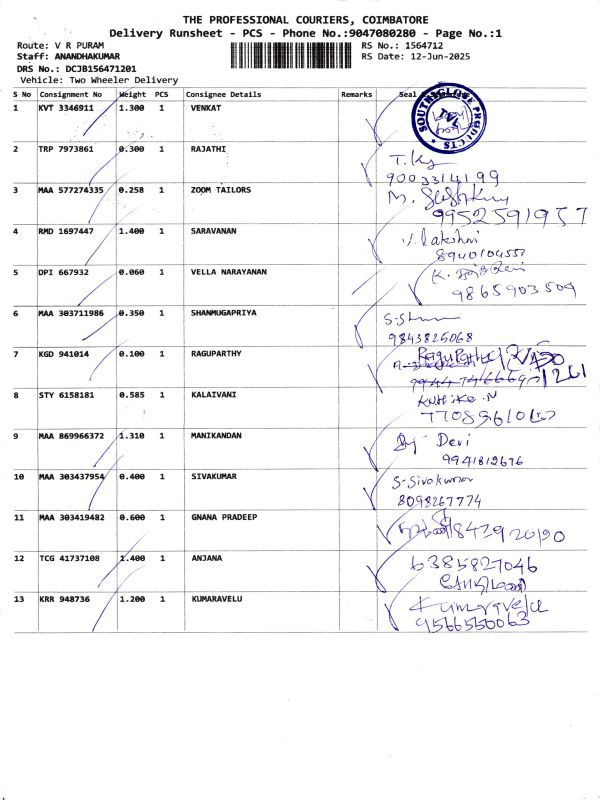 THE PROFESSIONAL COURIERS, COIMBATORE
Delivery Runsheet - PCS - Phone No.:9047080280 - Page No.:1
Route: V R PURAM
RS No.: 1564712
Staff: ANANDHAKUMAR
RS Date: 12-Jun-2025
DRS No.: DCJB156471201
Vehicle: Two Wheeler Delivery
S No Consignment No Weight PCS Consignee Details Remarks Seal
1 KVT 3346911 1.300 1 VENKAT
SOUTHS GLOVE PRODUCTS
TVL
2 TRP 7973861 0.300 1 RAJATHI
9003314199
3 MAA 577274335 0.258 1 ZOOM TAILORS
9952591957
4 RMD 1697447 1.400 1 SARAVANAN
V. Lakshmi
5 DPI 667932 0.060 1 VELLA NARAYANAN
9865903509
6 MAA 303711986 0.350 1 SHANMUGAPRIYA
9843825068
7 KGD 941014 0.100 1 RAGUPARTHY
RaguParthy
8 STY 6158181 0.585 1 KALAIVANI
9 MAA 869966372 1.310 1 MANIKANDAN
Devi
9941812676
10 MAA 303437954 0.400 1 SIVAKUMAR
S-Sivakumar
8098267774
11 MAA 303419482 0.600 1 GNANA PRADEEP
9842920190
12 TCG 41737108 1.400 1 ANJANA
6385827046
13 KRR 948736 1.200 1 KUMARAVELU
Kumaravelu
9566550063